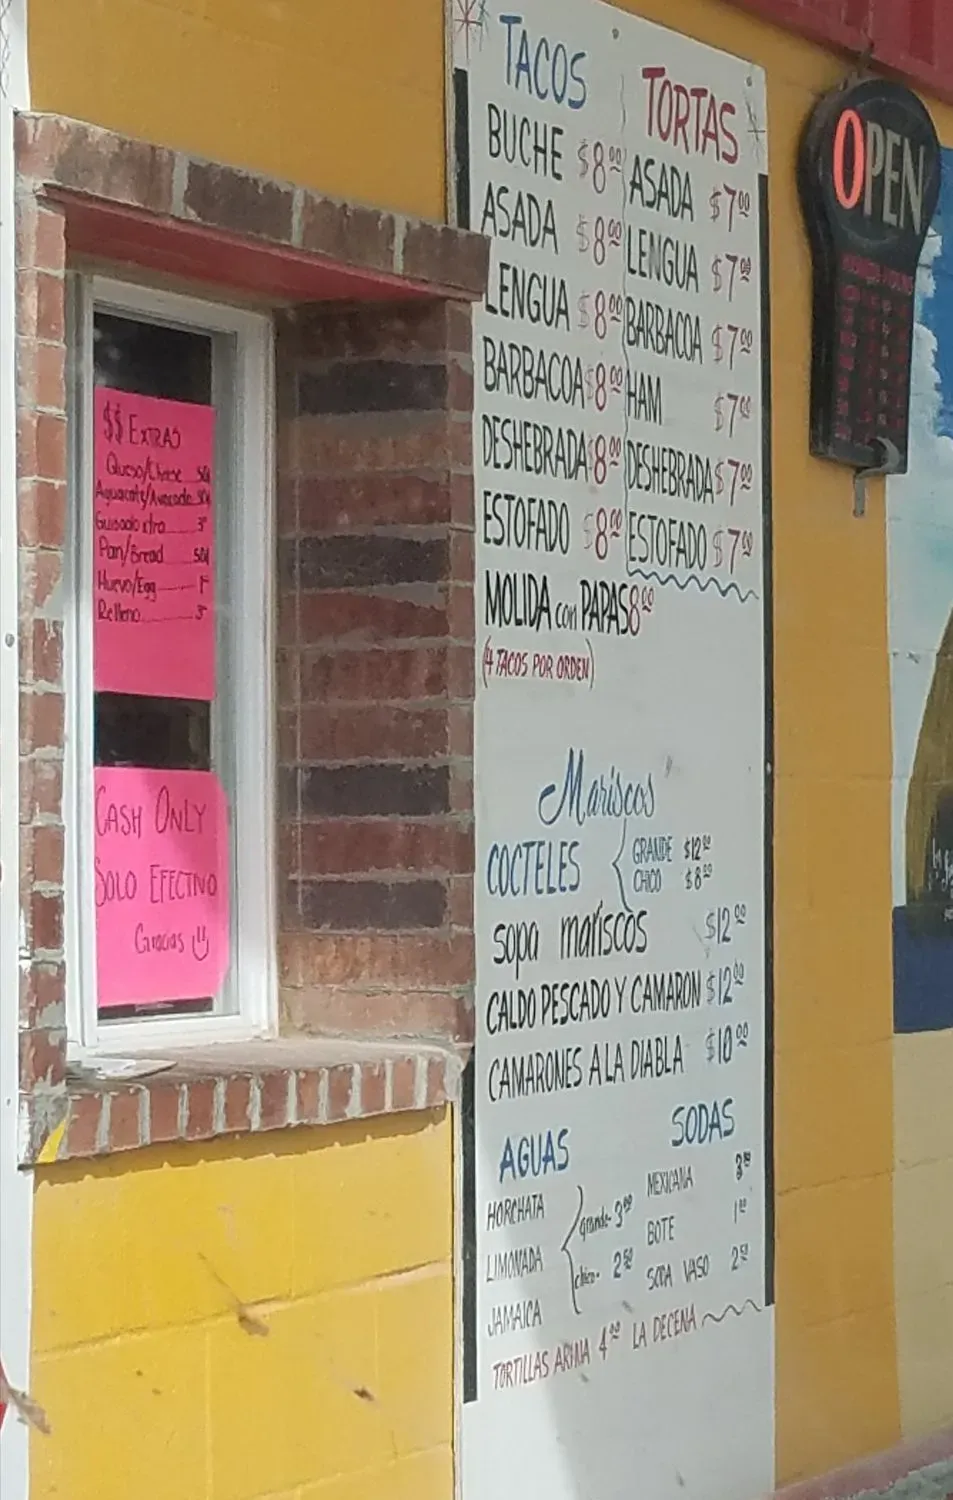 $$ EXTRAS
Queso/Cheese 50¢
Aguacate/Avocado 50¢
Guisado xtra
Pan/Bread 50¢
Huevo/Egg
Relleno
CASH ONLY
SOLO EFECTIVO
Gracias
TACOS
BUCHE $8.00
ASADA $8.00
LENGUA $8.00
BARBACOA $8.00
DESHEBRADA $8.00
ESTOFADO $8.00
MOLIDA con PAPAS 8.00
(4 TACOS POR ORDEN)
TORTAS
ASADA $7.00
LENGUA $7.00
BARBACOA $7.00
HAM $7.00
DESHEBRADA $7.00
ESTOFADO $7.00
Mariscos
COCTELES
GRANDE $12.00
CHICO $8.00
sopa mariscos $12.00
CALDO PESCADO Y CAMARON $12.00
CAMARONES A LA DIABLA $10.00
AGUAS
HORCHATA
LIMONADA
JAMAICA
grande- 3.00
chico- 2.50
SODAS
MEXICANA 3.00
BOTE 1.00
SODA VASO 2.50
TORTILLAS ARINA 4.00 LA DECENA
OPEN